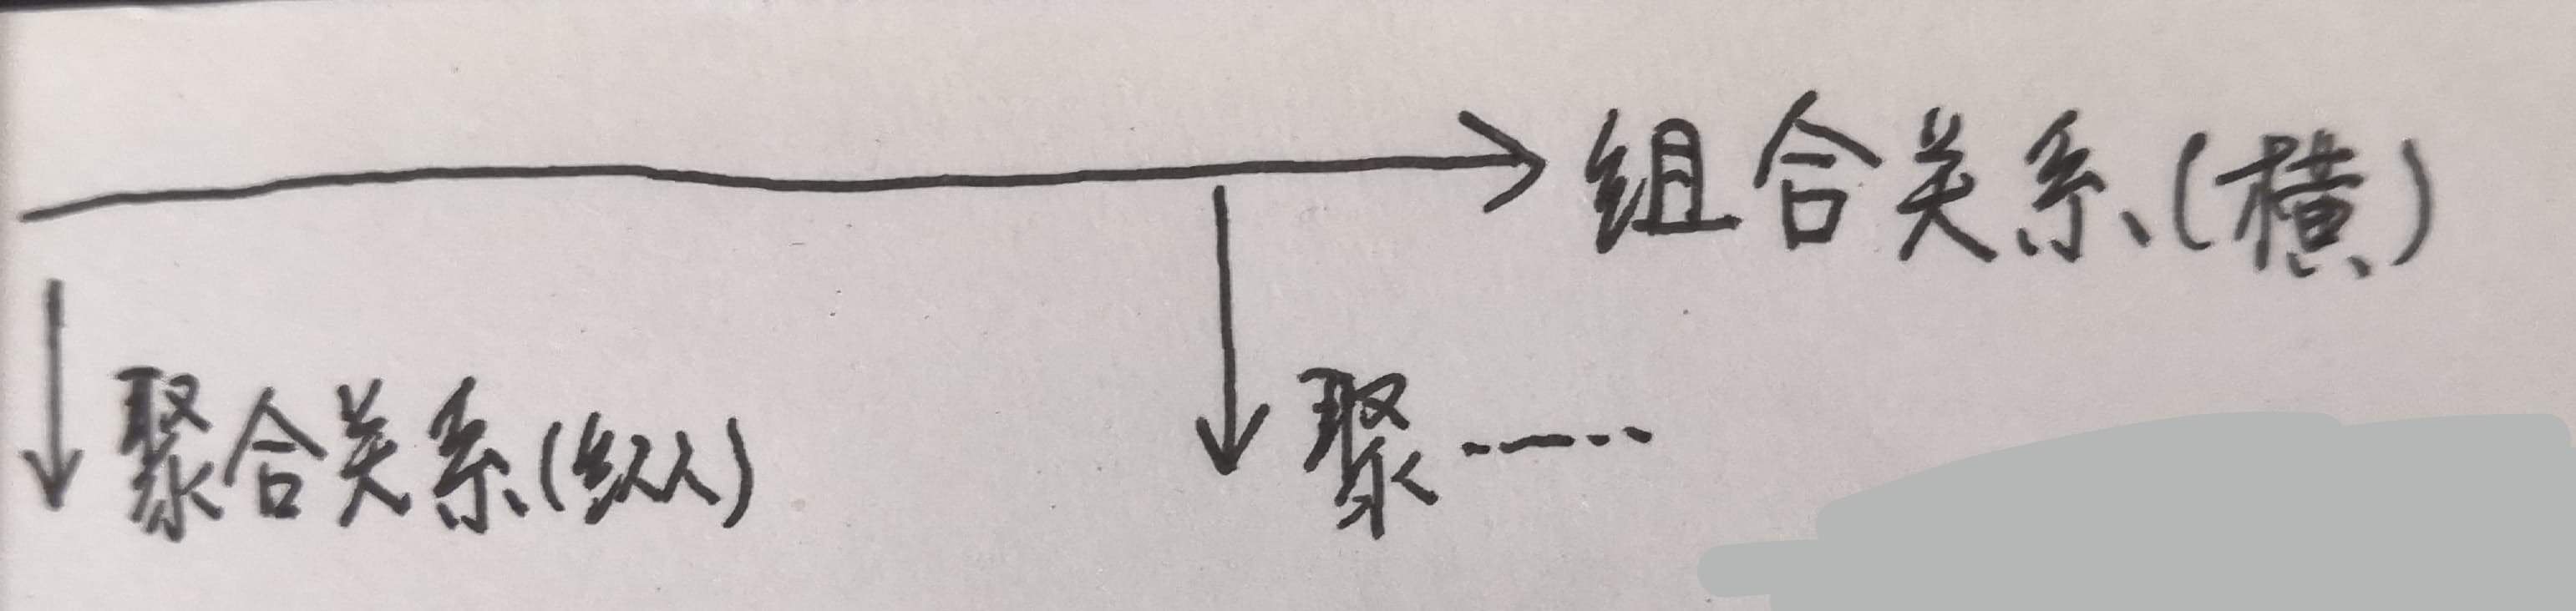 组合关系(横)
聚合关系(纵)
聚……